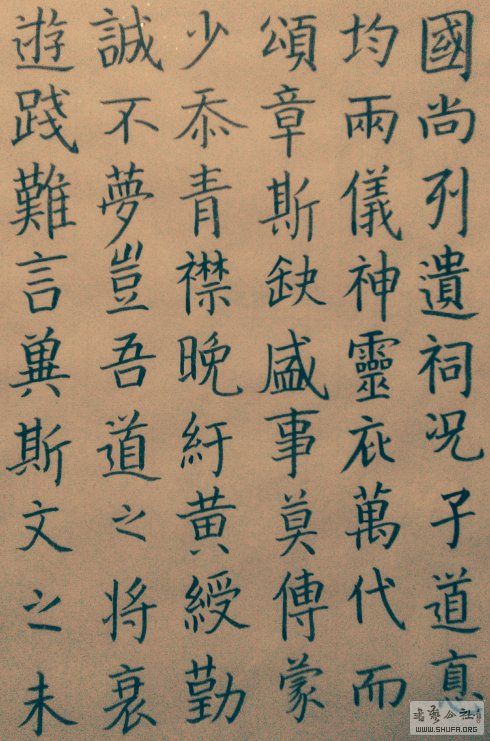 國尚列遺祠况子道悳
均兩儀神靈庇萬代而
頌章斯缺盛事莫傳蒙
少忝青襟晚紆黄綬勤
誠不夢豈吾道之将衰
遊踐難言冀斯文之未
书艺公社
WWW.SHUFA.ORG